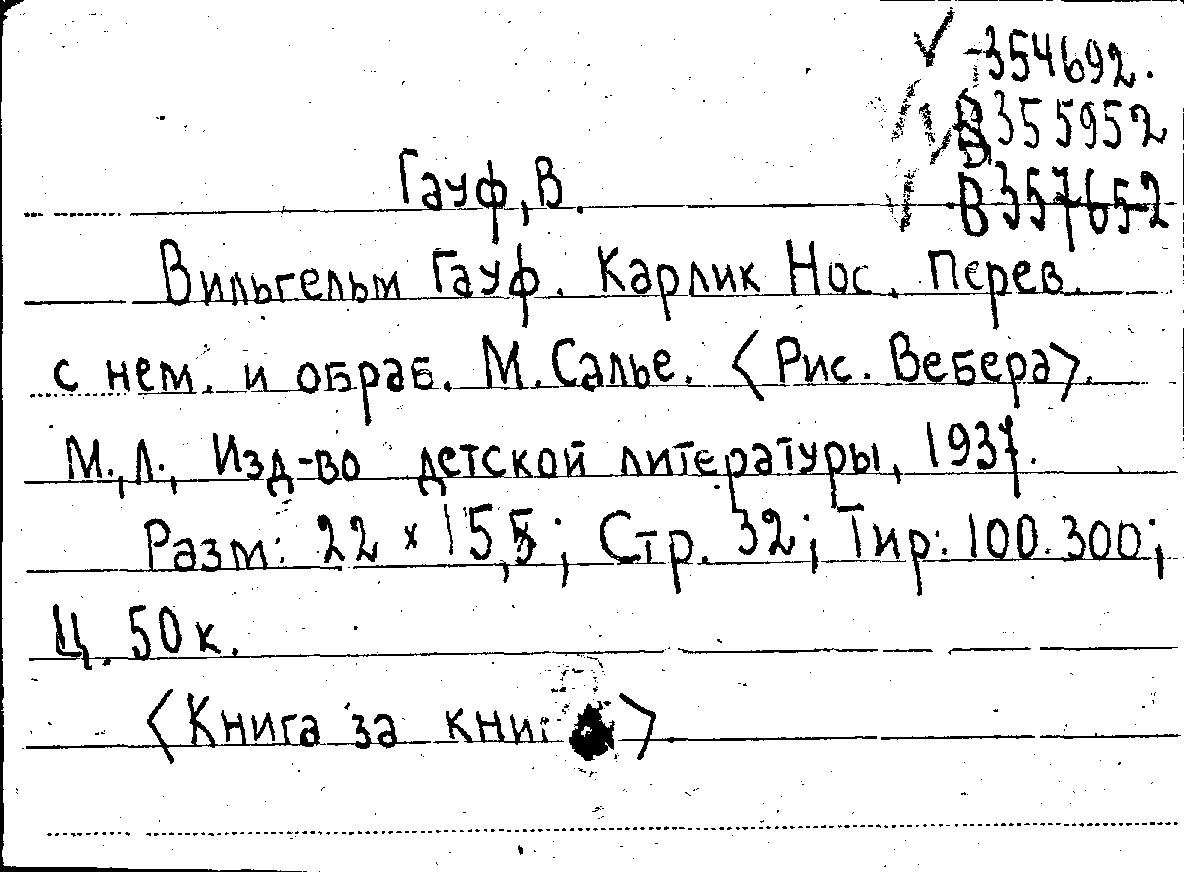 354692.
В355952
В357652
Гауф, В.
Вильгельм Гауф. Карлик Нос. Перев.
с нем. и обраб. М. Салье. <Рис. Вебера>.
М.,Л., Изд-во детской литературы, 1937.
Разм: 22 × 15,5; Стр. 32; Тир: 100.300;
Ц. 50 к.
<Книга за